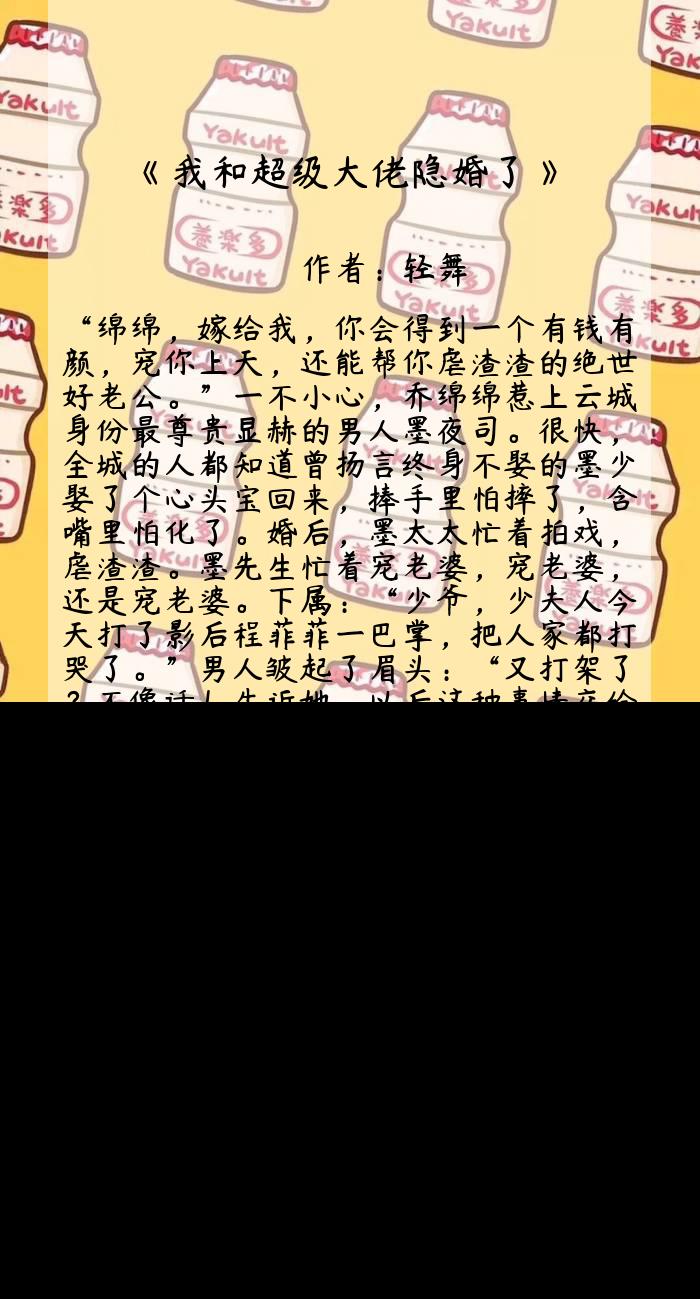 《我和超级大佬隐婚了》
作者：轻舞
“绵绵，嫁给我，你会得到一个有钱有
颜，宠你上天，还能帮你虐渣渣的绝世
好老公。”一不小心，乔绵绵惹上云城
身份最尊贵显赫的男人墨夜司。很快，
全城的人都知道曾扬言终身不娶的墨少
娶了个心头宝回来，捧手里怕摔了，含
嘴里怕化了。婚后，墨太太忙着拍戏，
虐渣渣。墨先生忙着宠老婆，宠老婆，
还是宠老婆。下属：“少爷，少夫人今
天打了影后程菲菲一巴掌，把人家都打
哭了。”男人皱起了眉头：“又打架了
Yakult
养楽多
Yakult